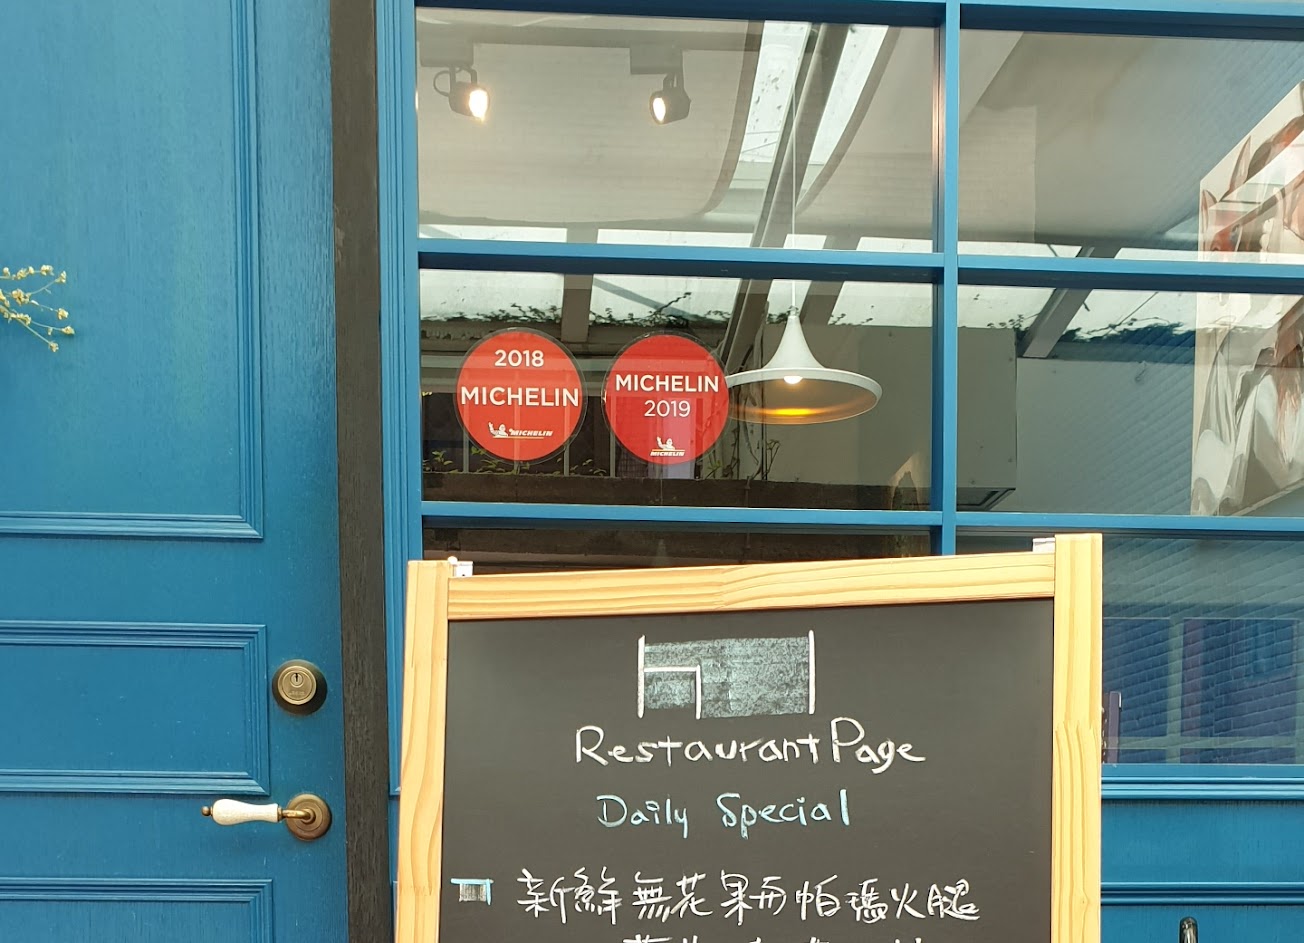 2018
MICHELIN
MICHELIN
MICHELIN
2019
MICHELIN
Restaurant Page
Daily Special
新鮮無花果西帕瑪火腿